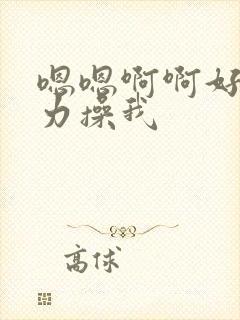 嗯嗯啊啊好
力操我
高俅